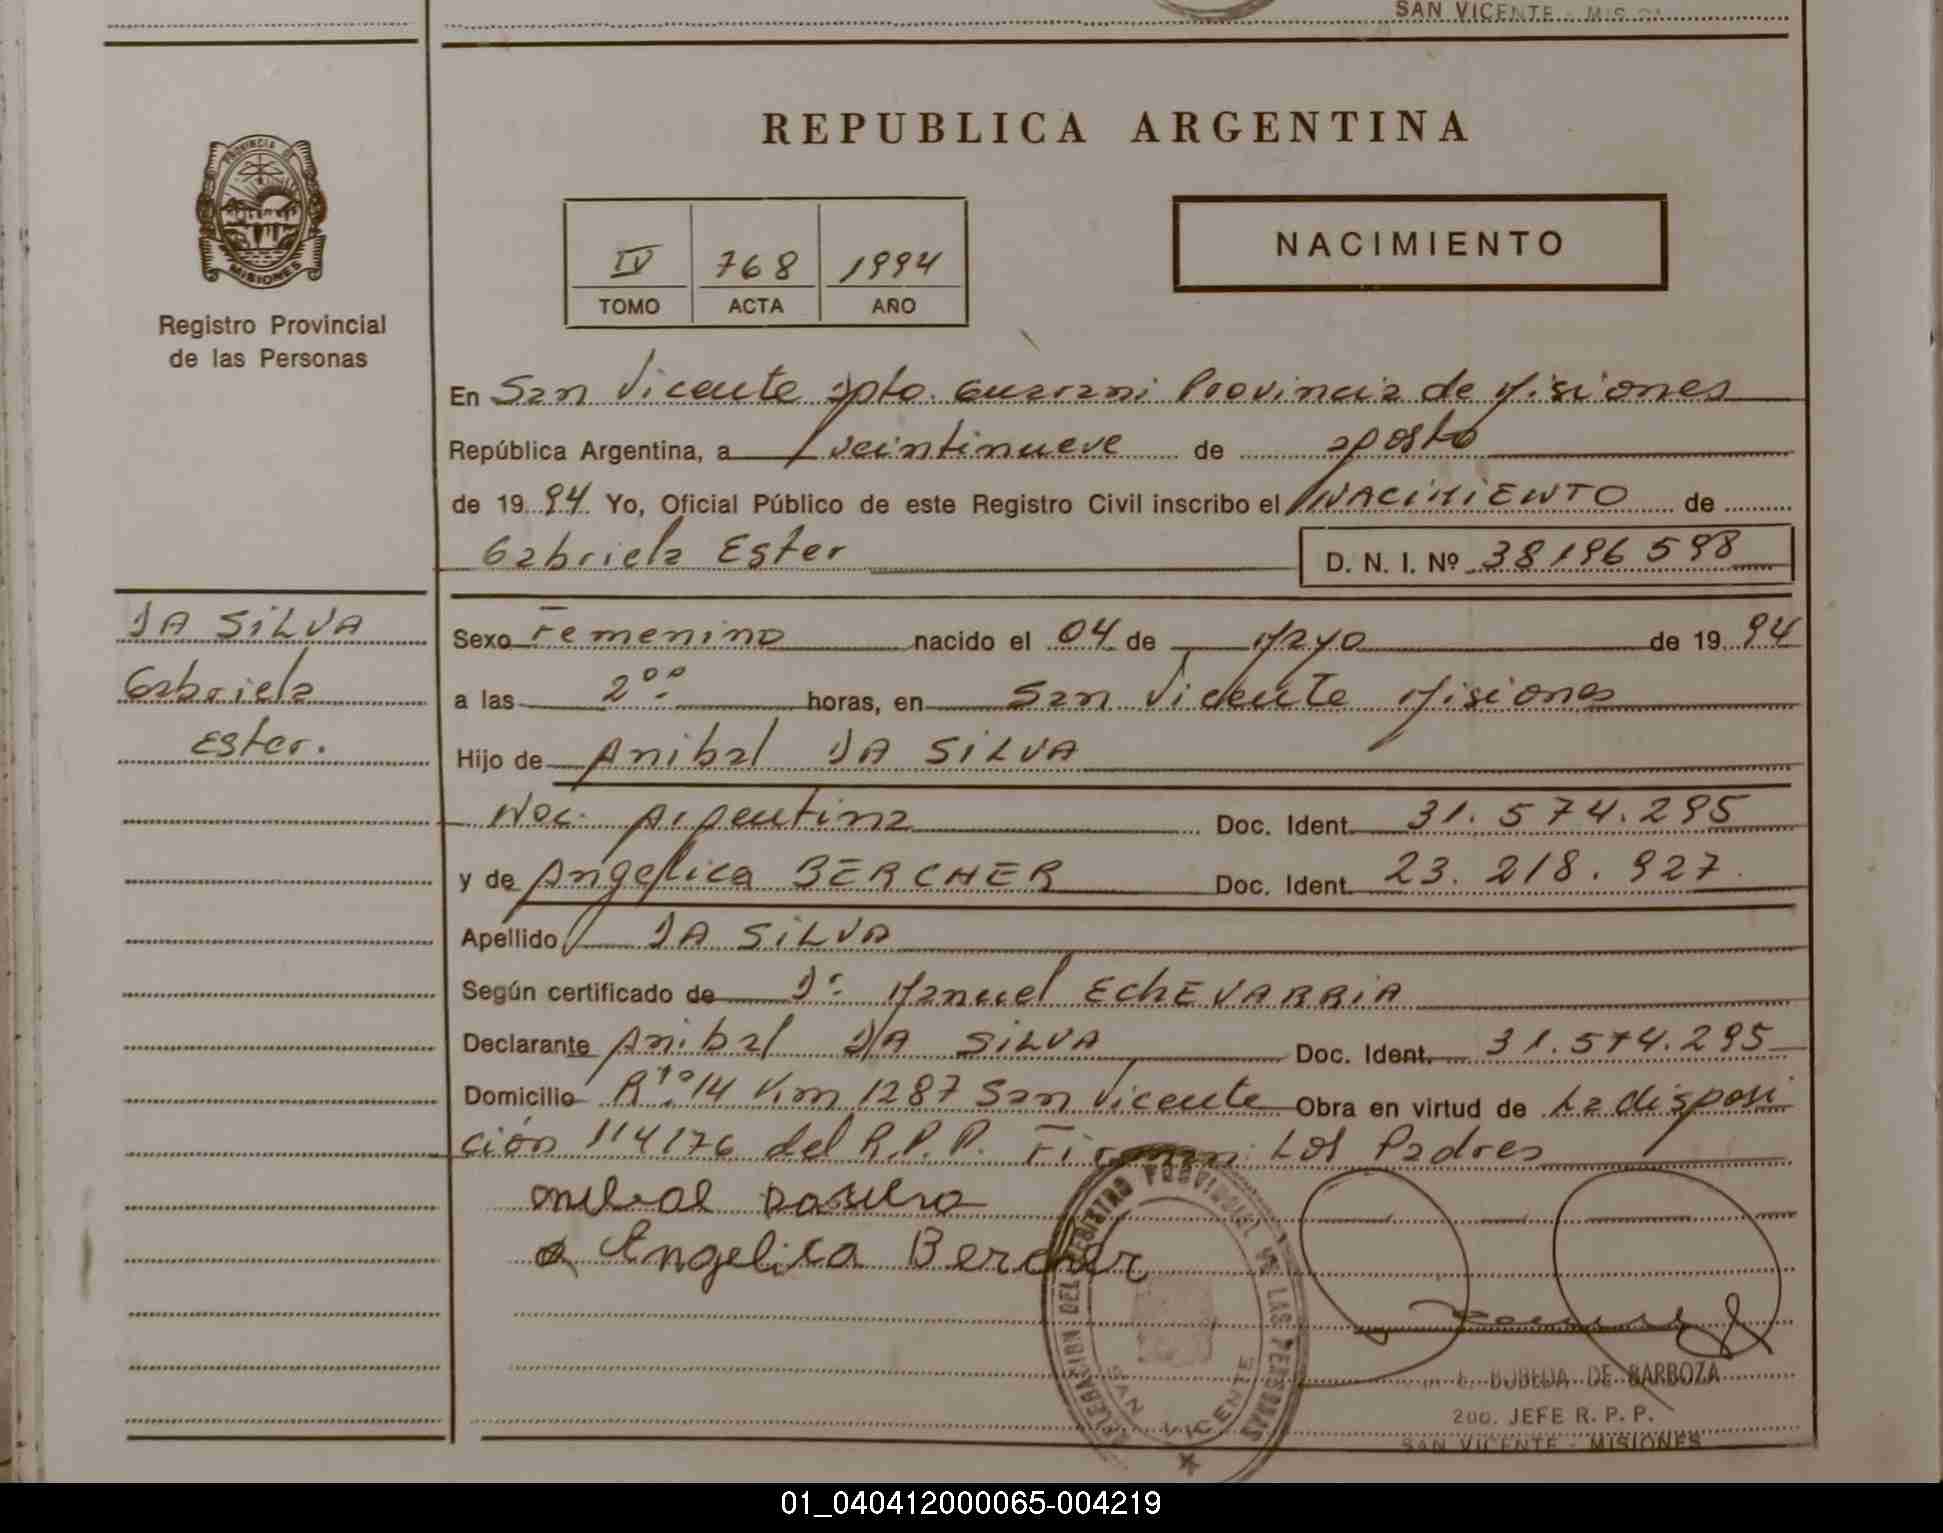 SAN VICENTE - MIS
REPUBLICA ARGENTINA
PROVINCIA DE
MISIONES
Registro Provincial
de las Personas
IV 768 1994
TOMO ACTA AÑO
NACIMIENTO
En San Vicente Dpto. Guarani Provincia de Misiones
República Argentina, a veintinueve de agosto
de 1994 Yo, Oficial Público de este Registro Civil inscribo el NACIMIENTO de
Gabriela Ester D. N. I. Nº 38196598
DA SILVA
Gabriela
Ester.
Sexo Femenino nacido el 04 de Mayo de 1994
a las 2°° horas, en San Vicente Misiones
Hijo de Anibal DA SILVA
Nac. Argentina Doc. Ident. 31.574.295
y de Angelica BERCHER Doc. Ident. 23.218.927
Apellido DA SILVA
Según certificado de Dr. Manuel ECHEVARRIA
Declarante Anibal DA SILVA Doc. Ident. 31.574.295
Domicilio Rta 14 Km 1287 San Vicente Obra en virtud de La disposi
ción 114176 del R.P.P. Firman: Los Padres
Angelica Bercher
DELEGACION DEL REGISTRO PROVINCIAL DE LAS PERSONAS
SAN VICENTE
BOBEDA DE BARBOZA
2do. JEFE R. P. P.
SAN VICENTE - MISIONES
01_040412000065-004219